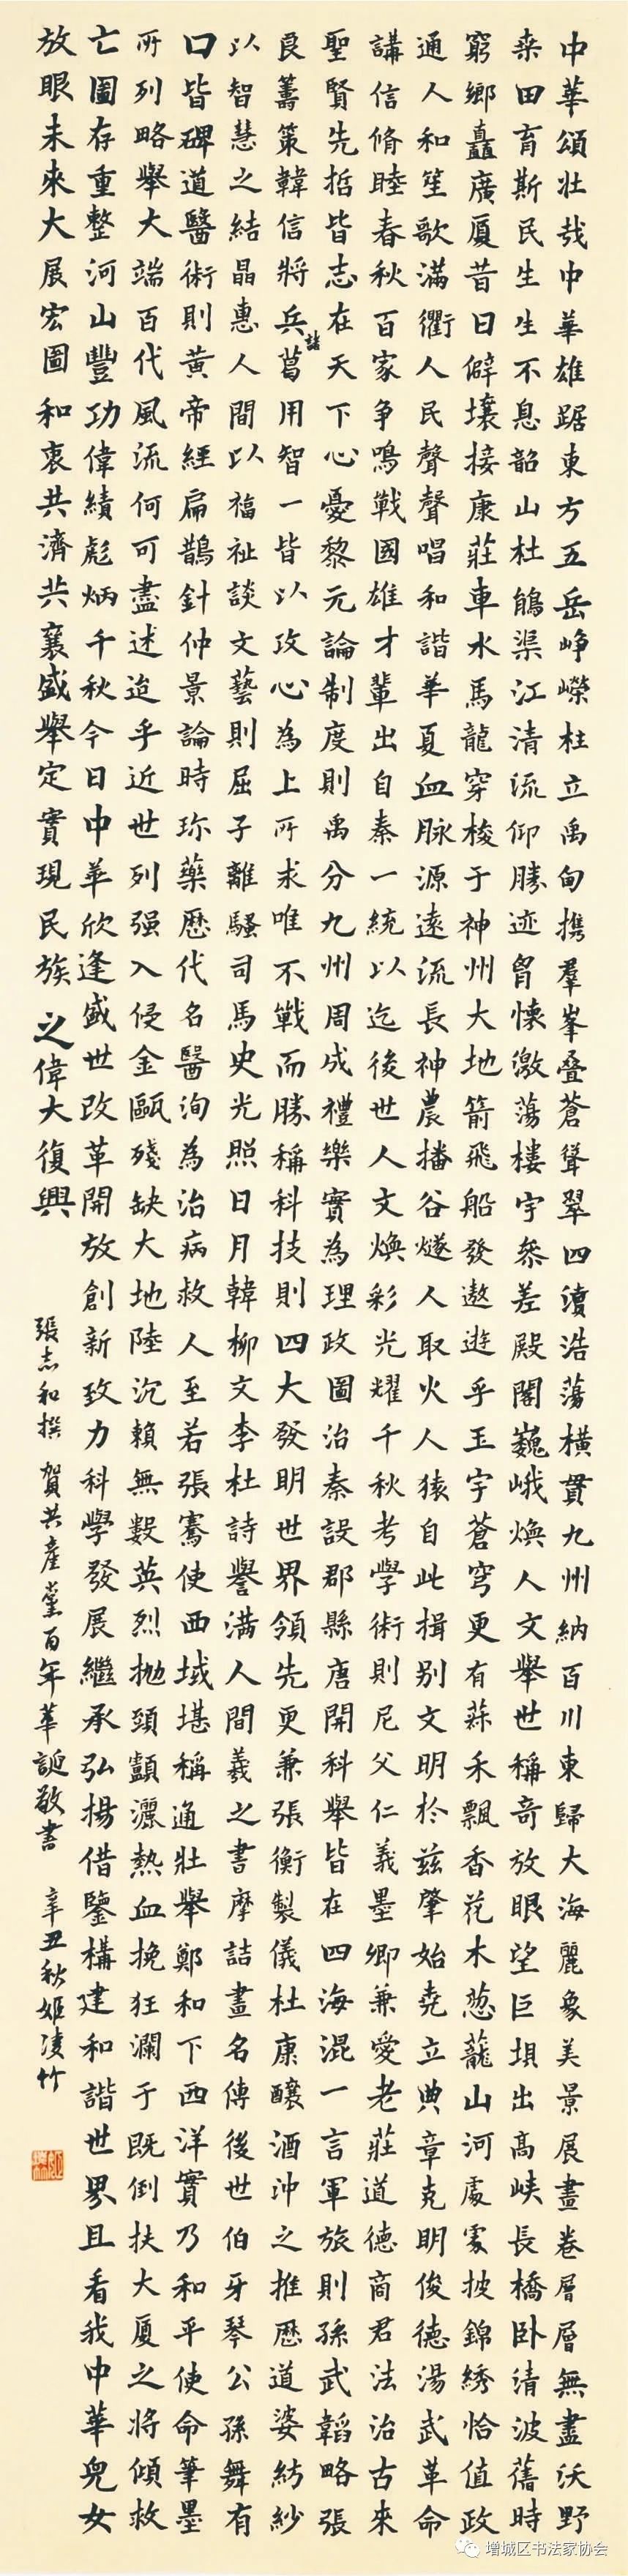 中華頌壯哉中華雄踞東方五岳崢嶸柱立禹甸携羣峯叠蒼聳翠四瀆浩蕩橫貫九州納百川東歸大海麗象美景展畫卷層層無盡沃野
桒田育斯民生生不息韶山杜鵑渠江清流仰勝迹胷懐激蕩樓宇叅差殿閣巍峨焕人文舉世稱奇放眼望巨垻出高峽長橋卧清波舊時
窮鄉矗廣厦昔日僻壤接康莊車水馬龍穿梭于神州大地箭飛船發遨遊乎玉宇蒼穹更有蔴禾飄香花木葱蘢山河處處披錦綉恰值政
通人和笙歌滿衢人民聲聲唱和諧華夏血脉源遠流長神農播谷燧人取火人猿自此揖别文明於兹肇始堯立典章克明俊德湯武革命
講信脩睦春秋百家争鳴戰國雄才輩出自秦一統以迄後世人文焕彩光耀千秋考學術則尼父仁義墨卿兼愛老莊道德商君法治古來
聖賢先哲皆志在天下心憂黎元論制度則禹分九州周成禮樂實為理政圖治秦設郡縣唐開科舉皆在四海混一言軍旅則孫武韜略張
良籌策韓信將兵諸葛用智一皆以攻心為上所求唯不戰而勝稱科技則四大發明世界領先更兼張衡製儀杜康釀酒沖之推歷道婆紡紗
以智慧之結晶惠人間以福祉談文藝則屈子離騷司馬史光照日月韓柳文李杜詩譽满人間羲之書摩詰畫名傳後世伯牙琴公孫舞有
口皆碑道醫術則黄帝經扁鵲針仲景論時珍藥歷代名醫洵為治病救人至若張騫使西域堪稱通壯舉鄭和下西洋實乃和平使命筆墨
所列略舉大端百代風流何可盡述迨乎近世列强入侵金甌殘缺大地陸沉賴無數英烈抛頭顱灑熱血挽狂瀾于既倒扶大厦之將傾救
亡圖存重整河山豐功偉績彪炳千秋今日中華欣逢盛世改革開放創新致力科學發展繼承弘揚借鑒構建和諧世界且看我中華兒女
放眼未來大展宏圖和衷共濟共襄盛舉定實現民族之偉大復興
張志和撰 賀共產黨百年華誕敬書 辛丑秋姬凌竹
增城区书法家协会